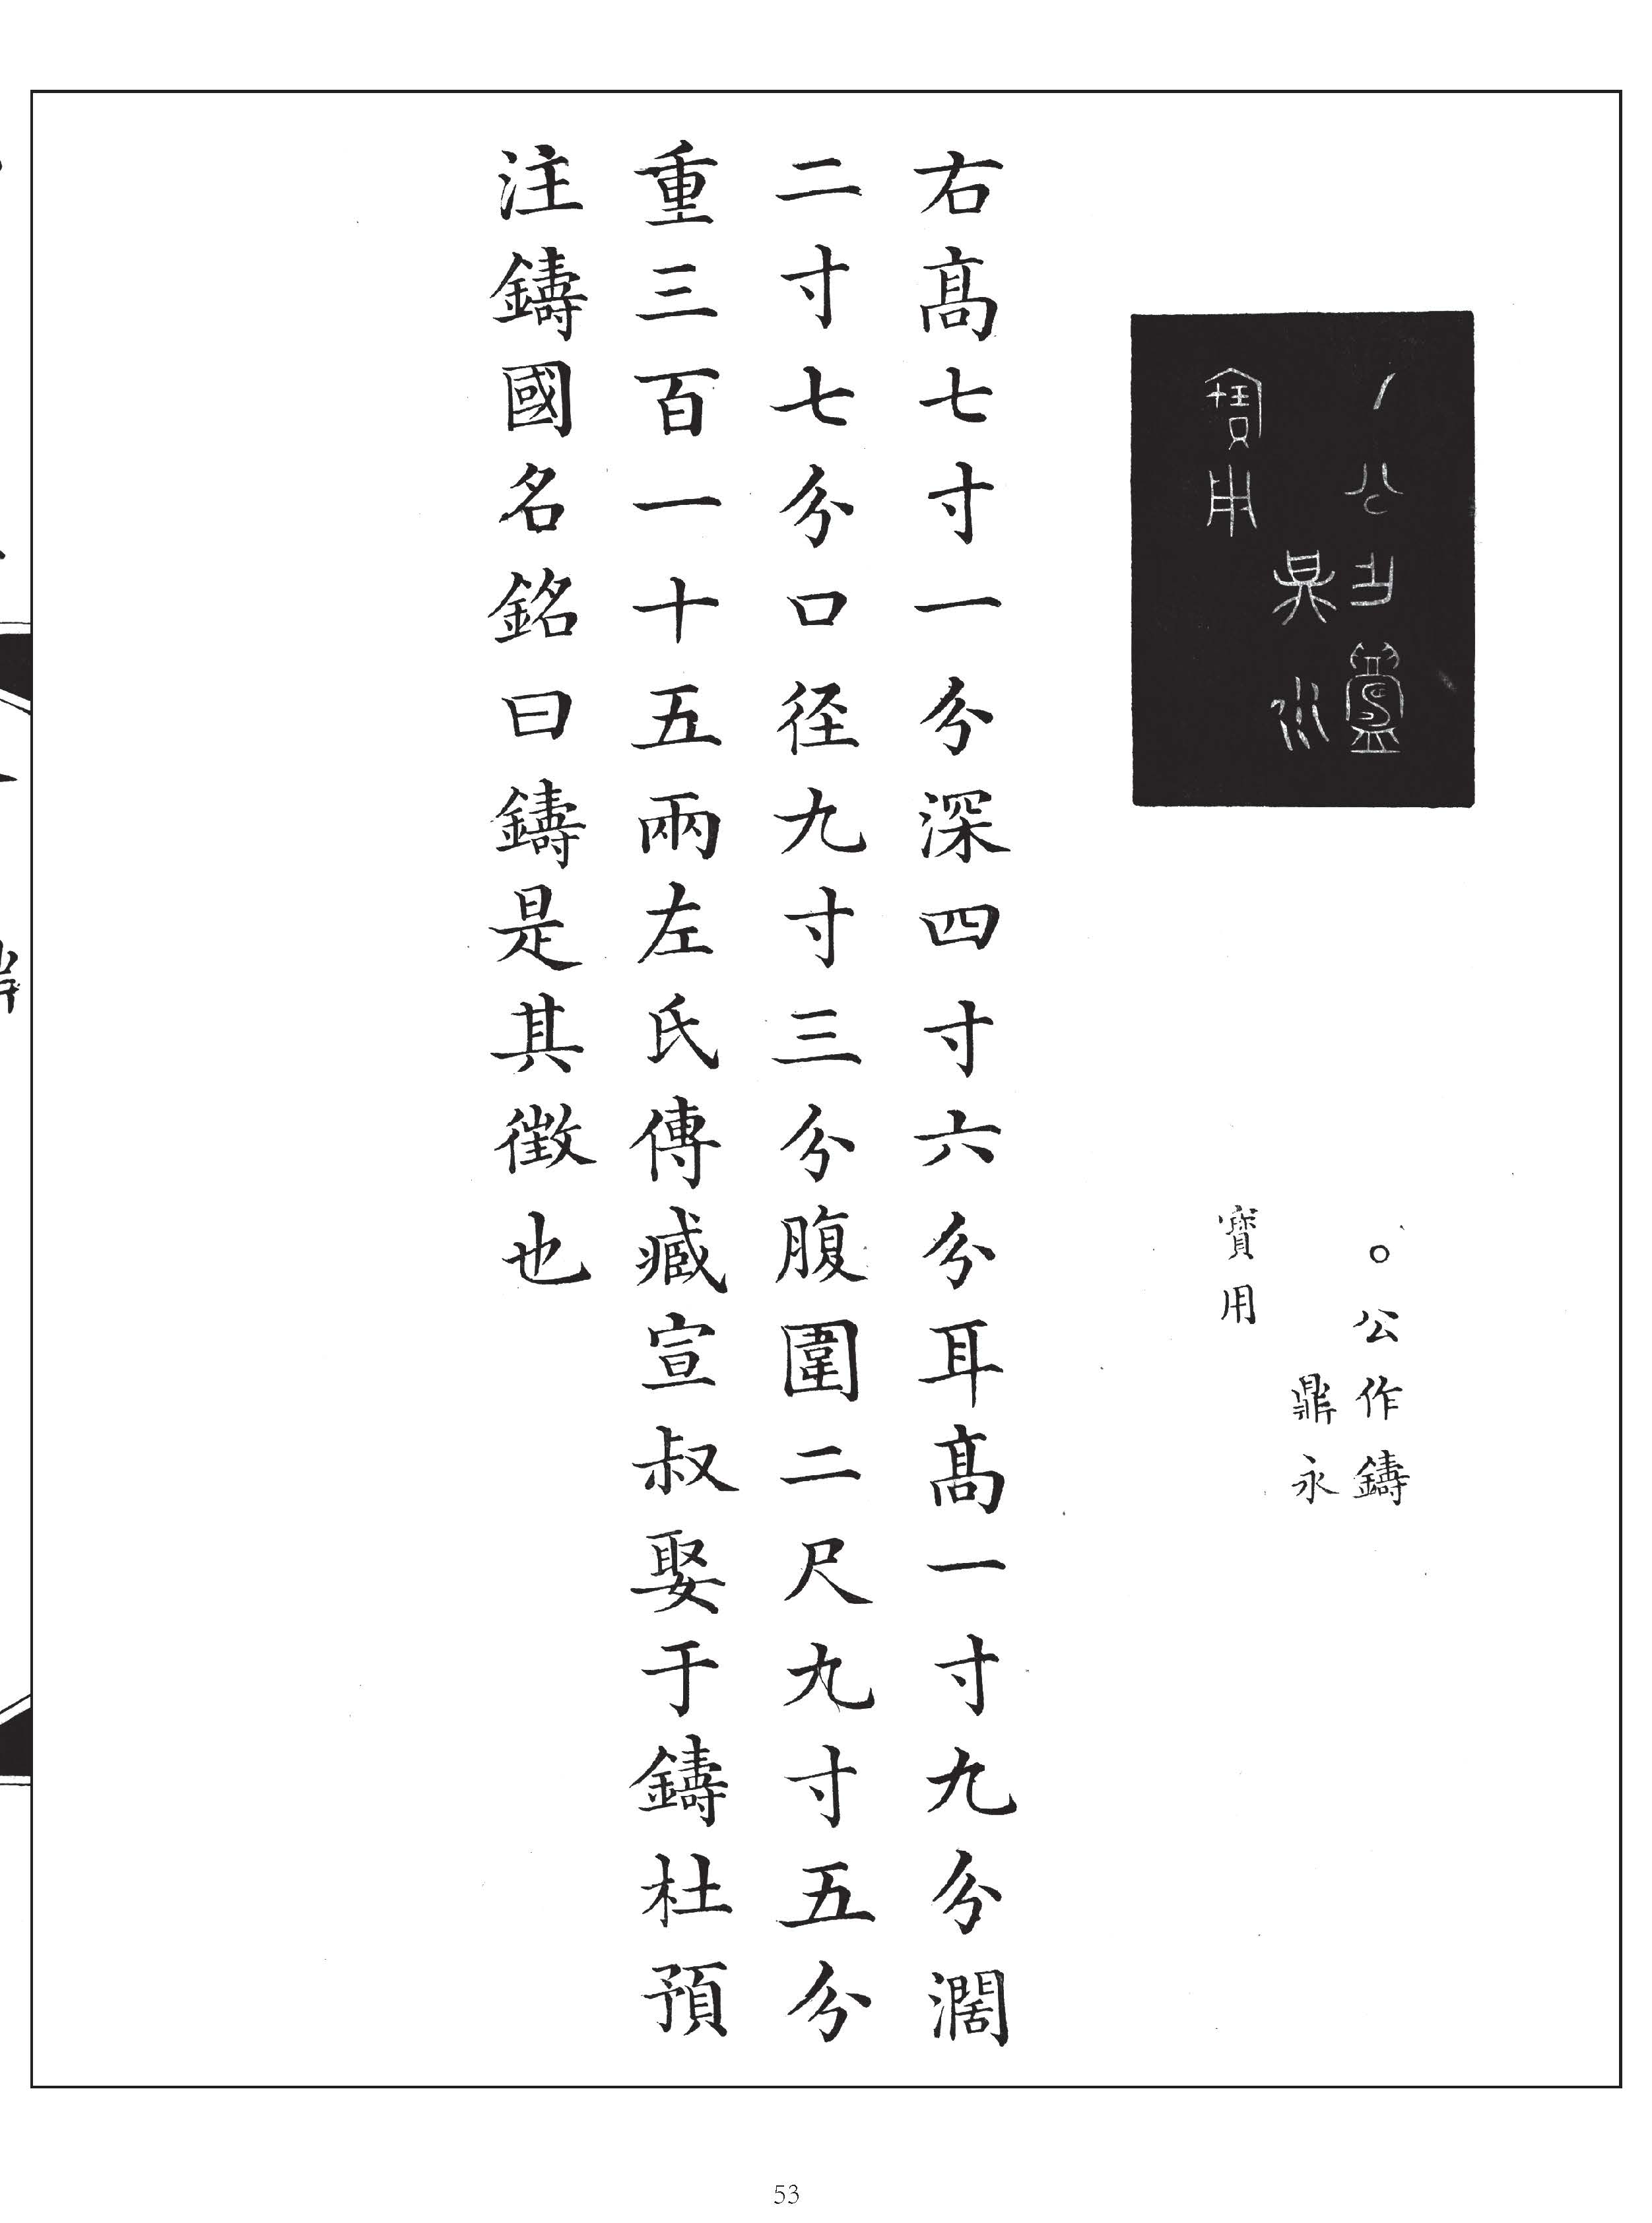 ○公作鑄
鼎永
寶用
右高七寸一分深四寸六分耳高一寸九分濶
二寸七分口径九寸三分腹圍二尺九寸五分
重三百一十五兩左氏傳臧宣叔娶于鑄杜預
注鑄國名銘曰鑄是其徵也
53